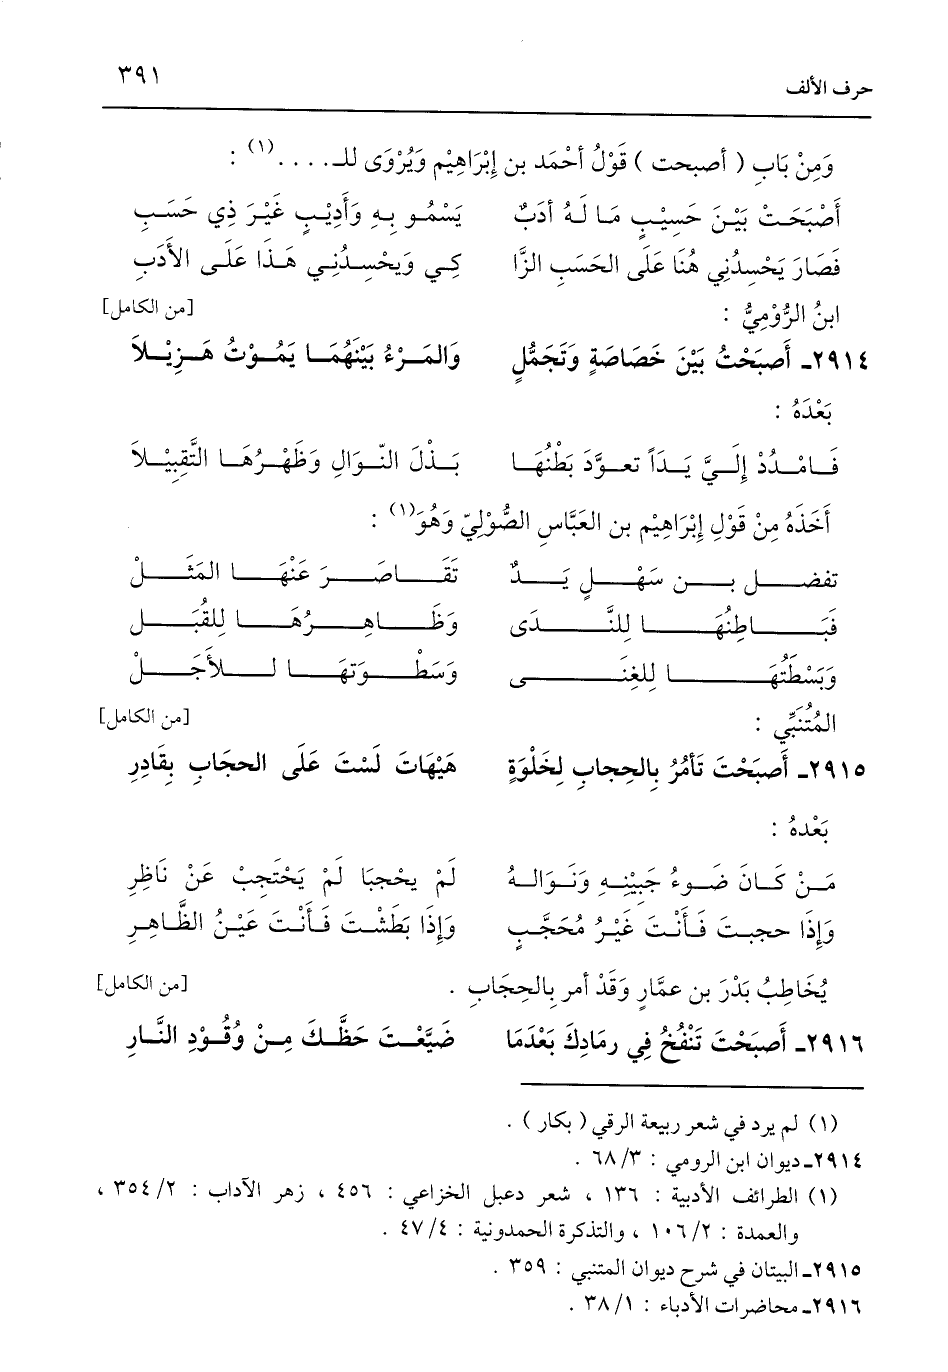 حرف الألف ٣٩١
وَمِنْ بَابِ ( أصبحت ) قَوْلُ أحْمَد بن إبْرَاهِيْم وَيُرْوَى للـ . . . . (١) :
أَصْبَحَتْ بَيْنَ حَسِيْبٍ مَا لَهُ أدَبٌ يَسْمُو بِهِ وَأَدِيْبٍ غَيْرَ ذِي حَسَبِ
فَصَارَ يَحْسِدُنِي هُنَا عَلَى الحَسَبِ الزَّا كِي وَيحْسِدُنِي هَذَا عَلَى الأَدَبِ
ابنُ الرُّوْمِيُّ : [من الكامل]
٢٩١٤ـ أَصبَحْتُ بَيْنَ خَصَاصَةٍ وَتَجَمُّلٍ وَالمَرْءُ بَيْنَهُمَا يَمُوْتُ هَزِيْلاَ
بَعْدَهُ :
فَامْدُدْ إِلَيَّ يَدَاً تعوَّدَ بَطْنُهَا بَذْلَ النَّوَالِ وَظَهْرُهَا التَّقبِيْلاَ
أَخَذَهُ مِنْ قَوْلِ إبْرَاهِيْم بن العَبَّاسِ الصُّوْلِيّ وَهُوَ(١) :
تفضل بن سَهْلٍ يَدٌ تَقَاصَرَ عَنْهَا المَثَلْ
فَبَاطِنُهَا لِلنَّدَى وَظَاهِرُهَا لِلقُبَلْ
وَبَسْطَتُهَا لِلغِنَى وَسَطْوَتهَا للأَجَلْ
المُتَنَبِّي : [من الكامل]
٢٩١٥ـ أَصبَحْتَ تَأمُرُ بالحِجابِ لخَلْوَةٍ هَيْهَاتَ لَسْتَ عَلَى الحجَابِ بِقَادِرِ
بَعْدهُ :
مَنْ كَانَ ضَوءُ جَبِيْنِهِ وَنَوَالهُ لَمْ يحْجبَا لَمْ يَحْتَجِبْ عَنْ نَاظِرِ
وَإِذَا حجبتَ فَأَنْتَ غَيْرُ مُحَجَّبٍ وَإِذَا بَطَشْتَ فَأَنْتَ عَيْنُ الظَّاهِرِ
يُخَاطِبُ بَدْرَ بن عمَّارٍ وَقَدْ أمر بالحِجَابِ . [من الكامل]
٢٩١٦ـ أَصبَحْتَ تَنْفُخُ فِي رمَادِكَ بَعْدَمَا ضَيَّعْتَ حَظَّكَ مِنْ وُقُوْدِ النَّارِ
(١) لم يرد في شعر ربيعة الرقي ( بكار ) .
٢٩١٤ـ ديوان ابن الرومي : ٦٨/٣ .
(١) الطرائف الأدبية : ١٣٦ ، شعر دعبل الخزاعي : ٤٥٦ ، زهر الآداب : ٣٥٤/٢ ،
والعمدة : ١٠٦/٢ ، والتذكرة الحمدونية : ٤٧/٤ .
٢٩١٥ـ البيتان في شرح ديوان المتنبي : ٣٥٩ .
٢٩١٦ـ محاضرات الأدباء : ٣٨/١ .